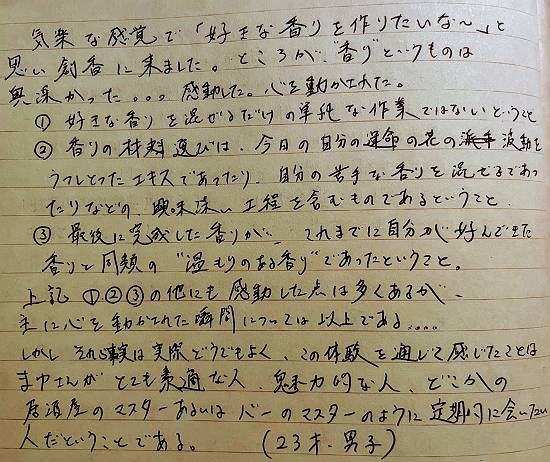 気楽な感覚で「好きな香りを作りたいな～」と
思い創香に来ました。ところが、"香り"というものは
奥深かった。。。感動した。心を動かされた。
① 好きな香りを混ぜるだけの単純な作業ではないということ
② 香りの材料選びは、今日の自分の運命の花の波動を
うつしとったエキスであったり、自分の苦手な香りを混ぜるであっ
たりなどの、興味深い工程を含むものであるということ、
③ 最後に完成した香りが、これまでに自分が好んできた
香りと同類の"温もりのある香り"であったということ。
上記①.②③の他にも感動した点は多くあるが、
主に心を動かされた瞬間については以上である....
しかしそれら事実は実際どうでもよく、この体験を通じて感じたことは
まゆさんがとても素適な人、魅力的な人、どこかの
居酒屋のマスターあるいはバーのマスターのように定期的に会いたい
人だということである。 (23才.男子)